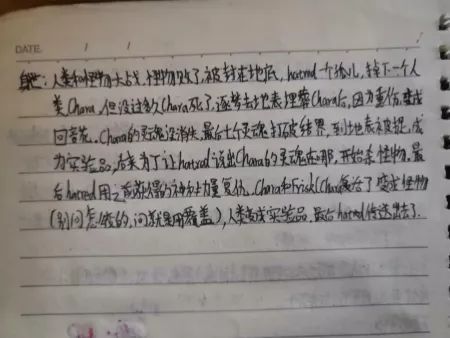 DATE / /
身世:人类和怪物大战,怪物败了,被封在地底,hatred一个孤儿,掉下一个人
类Chara,但没过多久Chara死了,逐梦去地表埋葬Chara后,因为重伤,变成
回音花。Chara的灵魂没消失,最后七个灵魂打破结界,到地表被捉,成
为实验品,后来为了让hatred说出Chara的灵魂在哪,开始杀怪物,最
后hatred用之前放的神力量复仇。Chara和Frisk(Chara复活了变成怪物
(别问怎做的,问就是用覆盖),人类变成实验品,最后hatred传送出去了.